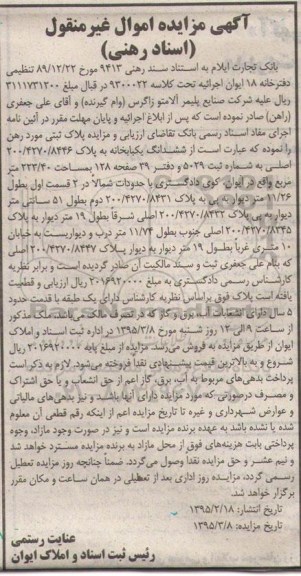 آگهی مزایده اموال غیرمنقول
(اسناد رهنی)
بانک تجارت ایلام به استناد سند رهنی ۹۴۱۳ مورخ ۸۹/۱۲/۲۲ تنظیمی
دفترخانه ۱۸ ایوان اجرائیه تحت کلاسه ۹۳۰۰۰۲۲ در قبال مبلغ ۳۱۱۱۷۳۱۲۰۰
ریال علیه شرکت صنایع پلیمر آلامتو زاگرس (وام گیرنده) و آقای علی جعفری
(راهن) صادر نموده است که پس از ابلاغ اجرائیه و پایان مهلت مقرر در آئین نامه
اجرای مفاد اسناد رسمی بانک تقاضای ارزیابی و مزایده پلاک ثبتی مورد رهن
را نموده که عبارت است از ششدانگ یکبابخانه به پلاک ۲۰۰/۴۲۷۰/۸۴۴۶
اصلی به شماره ثبت ۵۰۲۹ و دفتر ۳۹ صفحه ۱۲۸ بمساحت ۲۲۳/۴۰ متر
مربع واقع در ایوان، کوی دادگستری با حدودات شمالاً در ۲ قسمت اول بطول
۱۱/۲۶ متر دیوار به پی به پلاک ۲۰۰/۴۲۷۰/۸۴۳۱ دوم بطول ۵۱ سانتی متر
دیوار به پی پلاک ۲۰۰/۴۲۷۰/۸۴۳۲ اصلی شرقاً بطول ۱۹ متر دیوار به پلاک
۲۰۰/۴۲۷۰/۸۴۴۵ اصلی جنوب بطول ۱۱/۷۴ متر درب و دیواریست به خیابان
۱۰ متری غرباً بطول ۱۹ متر دیوار به دیوار پلاک ۲۰۰/۴۲۷۰/۸۴۴۷ اصلی
که بنام علی جعفری ثبت و سند مالکیت آن صادر گردیده است و برابر نظریه
کارشناس رسمی دادگستری به مبلغ ۲۰۱۶۹۲۰۰۰۰ ریال ارزیابی و قطعیت
یافته است پلاک فوق براساس نظریه کارشناس دارای یک طبقا با قدمت حدود
۵ سال دارای انشعابات آب، برق و گاز که در تصرف مالک می‌باشد. ملک مذکور
از ساعت ۹ الی ۱۲ روز شنبه مورخ ۱۳۹۵/۳/۸ در اداره ثبت اسناد و املاک
ایوان از طریق مزایده به فروش می‌رسد. مزایده از مبلغ پایه ۲۰۱۶۹۲۰۰۰۰ ریال
شروع و به بالاترین قیمت پیشنهادی نقداً فروخته می‌شود. لازم به ذکر است
پرداخت بدهی‌های مربوط به آب، برق، گاز اعم از حق انشعاب و یا حق اشتراک
و مصرف درصورتی که مورد مزایده دارای آنها باشد و نیز بدهی‌های مالیاتی
و عوارض شهرداری و غیره تا تاریخ مزایده اعم از اینکه رقم قطعی آن معلوم
شده یا نشده باشد به عهده برنده مزایده است و نیز در صورت وجود مازاد، وجوه
پرداختی بابت هزینه‌های فوق از محل مازاد به برنده مزایده مسترد خواهد شد
و نیم عشر و حق مزایده نقداً وصول می‌گردد. ضمناً چنانچه روز مزایده تعطیل
رسمی گردد، مزایده روز اداری بعد از تعطیلی در همان ساعت و مکان مقرر
برگزار خواهد شد.
تاریخ انتشار: ۱۳۹۵/۲/۱۸
تاریخ مزایده: ۱۳۹۵/۳/۸
عنایت رستمی
رئیس ثبت اسناد و املاک ایوان